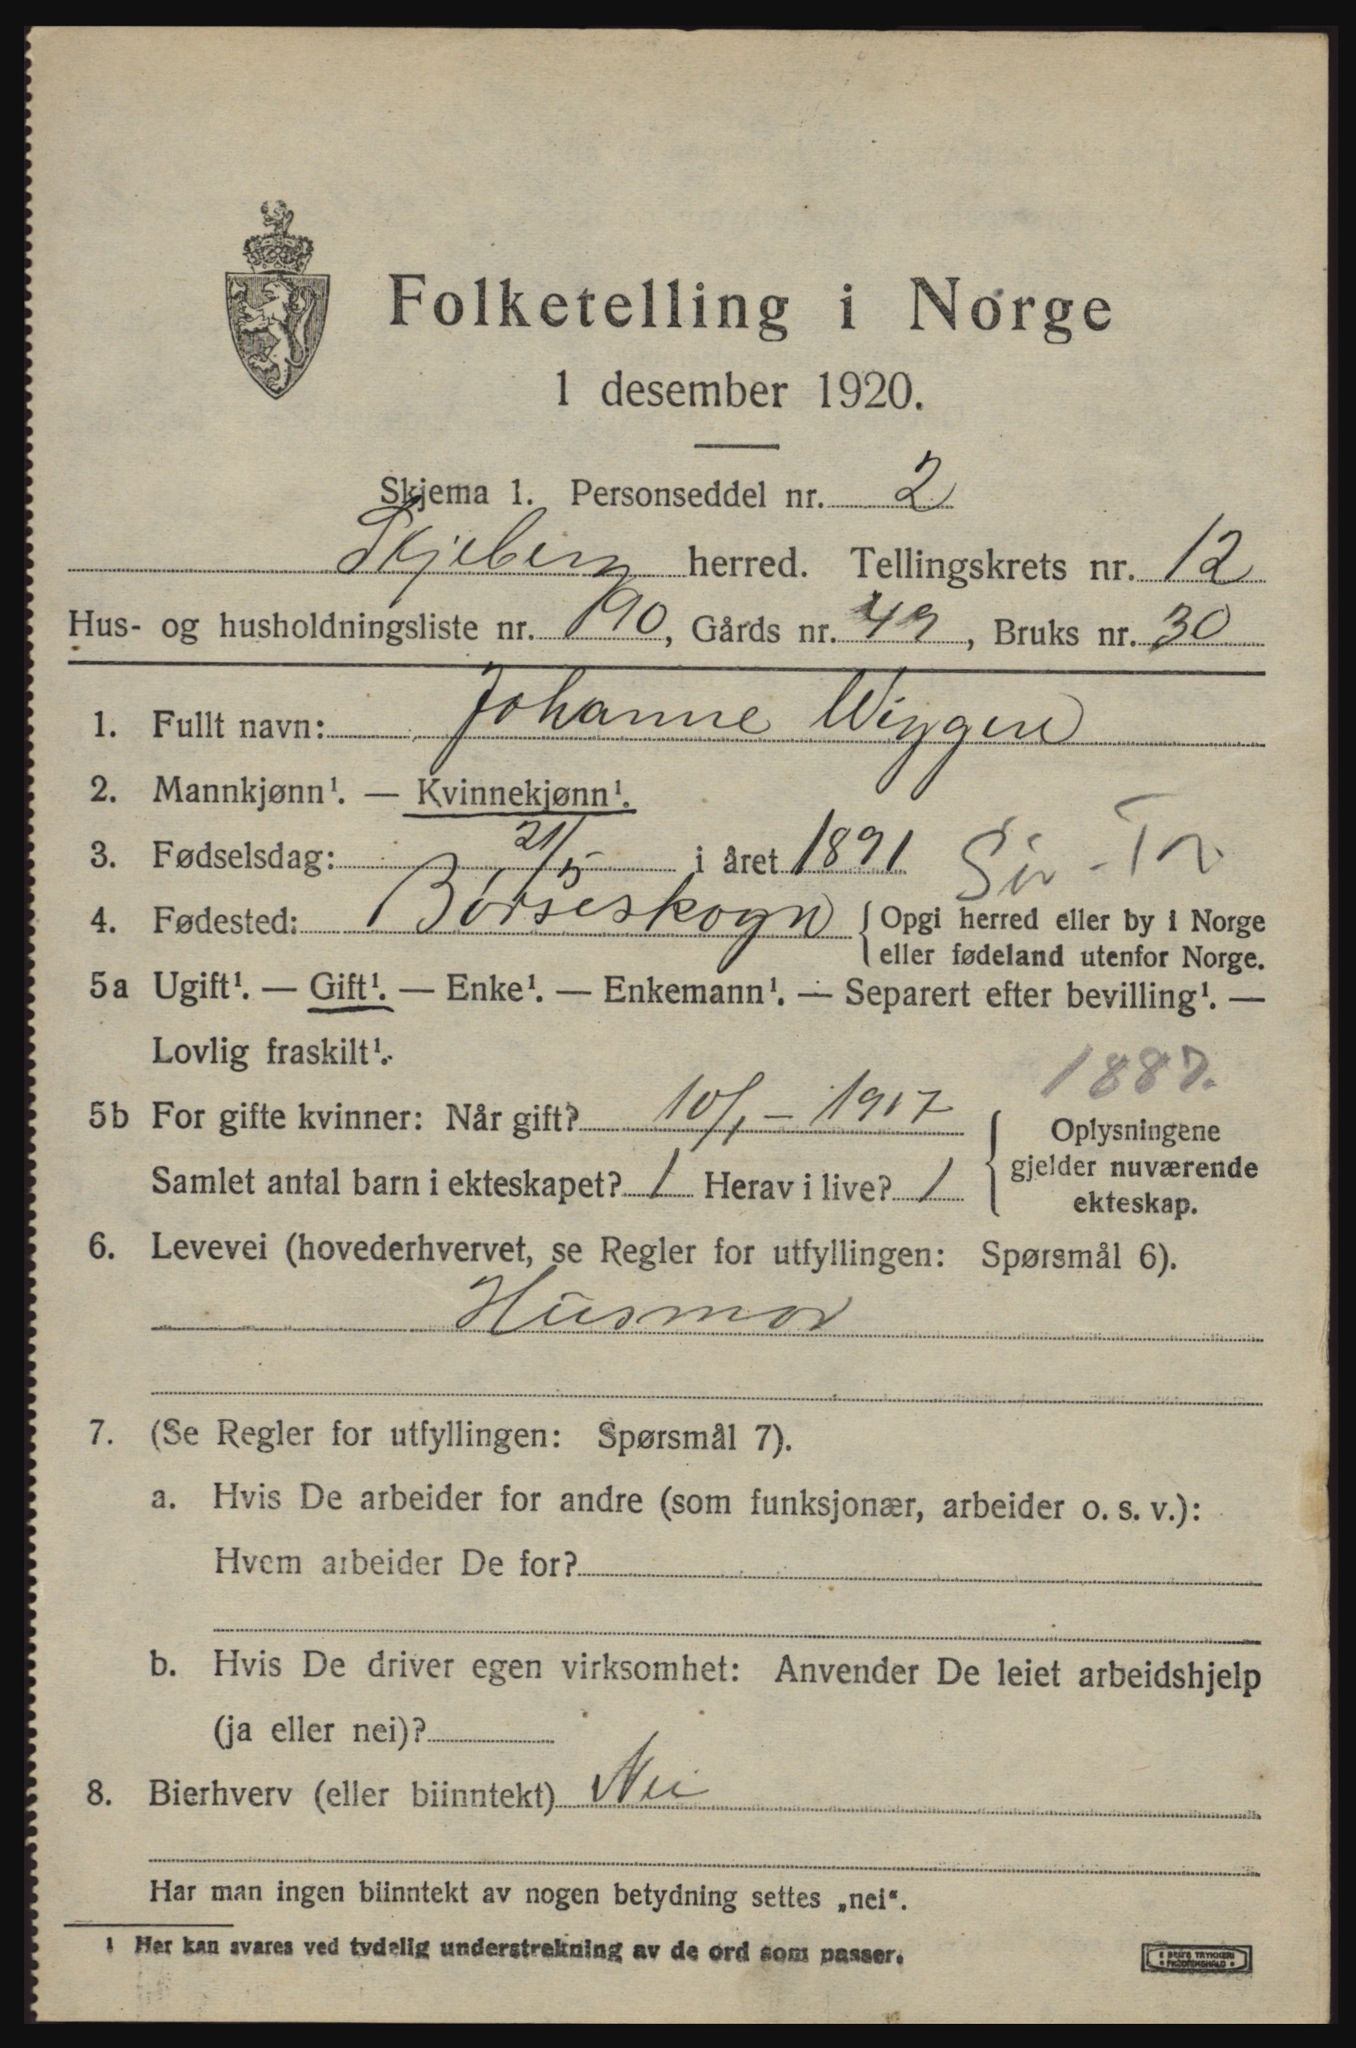 Folketelling i Norge
1 desember 1920.
Skjema 1. Personseddel nr. 2
Skjeberg herred. Tellingskrets nr. 12
Hus- og husholdningsliste nr. 190, Gårds nr. 49, Bruks nr. 30
1. Fullt navn: Johanne Wiggen
2. Mannkjønn¹. — Kvinnekjønn¹.
3. Fødselsdag: 21/5 - i året 1891 Sør-Tr.
4. Fødested: Børseskogn { Opgi herred eller by i Norge
eller fødeland utenfor Norge.
5a Ugift¹. — Gift¹. — Enke¹. — Enkemann¹. — Separert efter bevilling¹. —
Lovlig fraskilt¹.
1887.
5b For gifte kvinner: Når gift? 10/1 - 1917 { Oplysningene
gjelder nuværende
Samlet antal barn i ekteskapet? 1 Herav i live? 1
ekteskap.
6. Levevei (hovederhvervet, se Regler for utfyllingen: Spørsmål 6).
Husmor
7. (Se Regler for utfyllingen: Spørsmål 7).
a. Hvis De arbeider for andre (som funksjonær, arbeider o. s. v.):
Hvem arbeider De for?
b. Hvis De driver egen virksomhet: Anvender De leiet arbeidshjelp
(ja eller nei)?
8. Bierhverv (eller biinntekt) Nei
Har man ingen biinntekt av nogen betydning settes „nei“.
1 Her kan svares ved tydelig understrekning av de ord som passer.